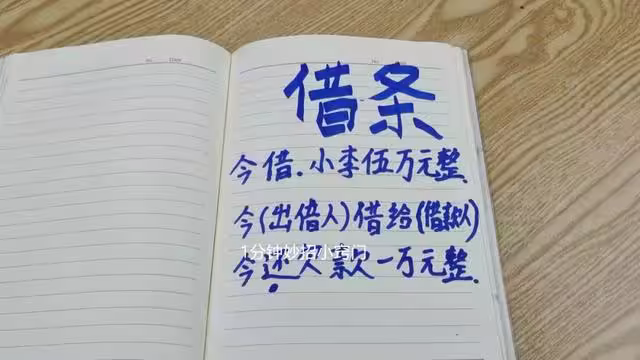 借条
今借.小李伍万元整.
今(出借人)借给(借款人)
1分钟妙招小窍门
今还欠款一万元整.